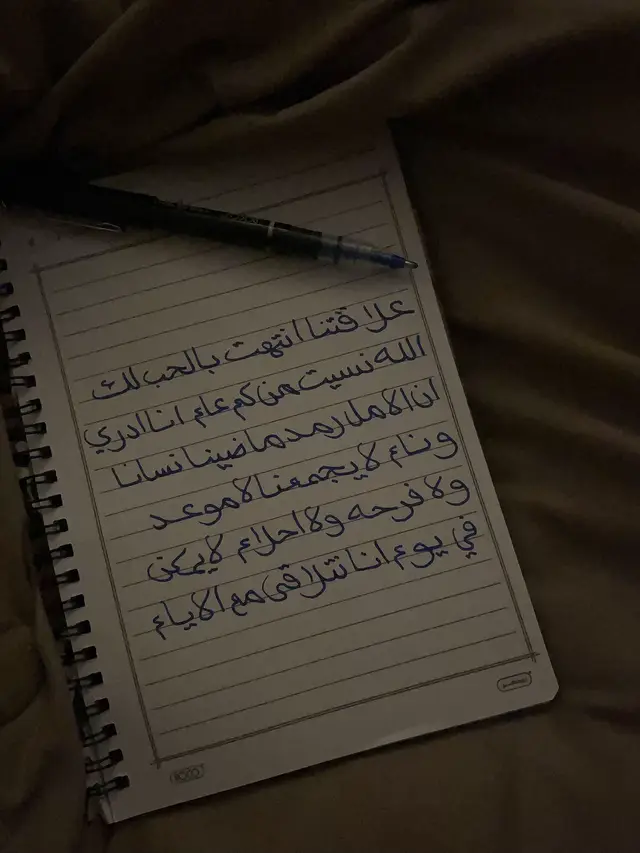 علاقتنا انتهت بالحب لك
الله نسيت من كم عام انا ادري
ان الامل رمد ماضينا نسانا
ونام لا يجمعنا لا موعد
ولا فرحه ولا احلام لا يمكن
في يوم انا نتلاقى مع الايام